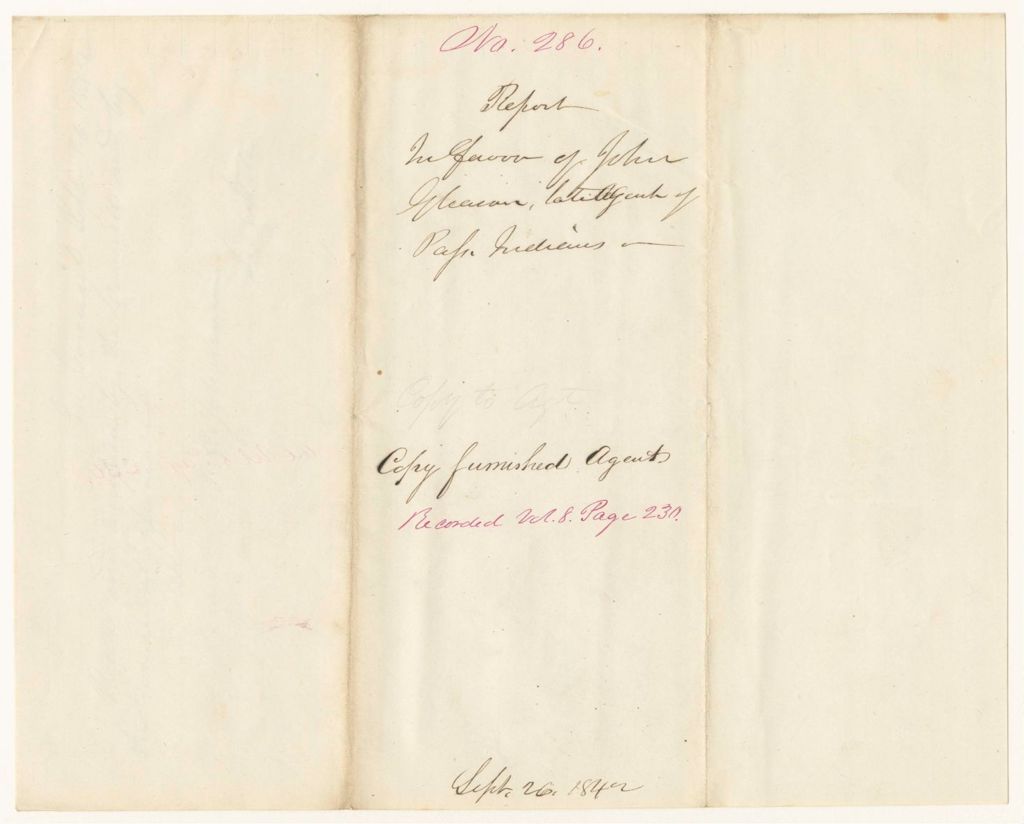 No. 286.
Report
In favor of John
Gleason, late Agent of
Pass. Indians —
Copy to Agt
Copy furnished Agents
Recorded Vol. 8. Page 230.
Sept. 26. 1842